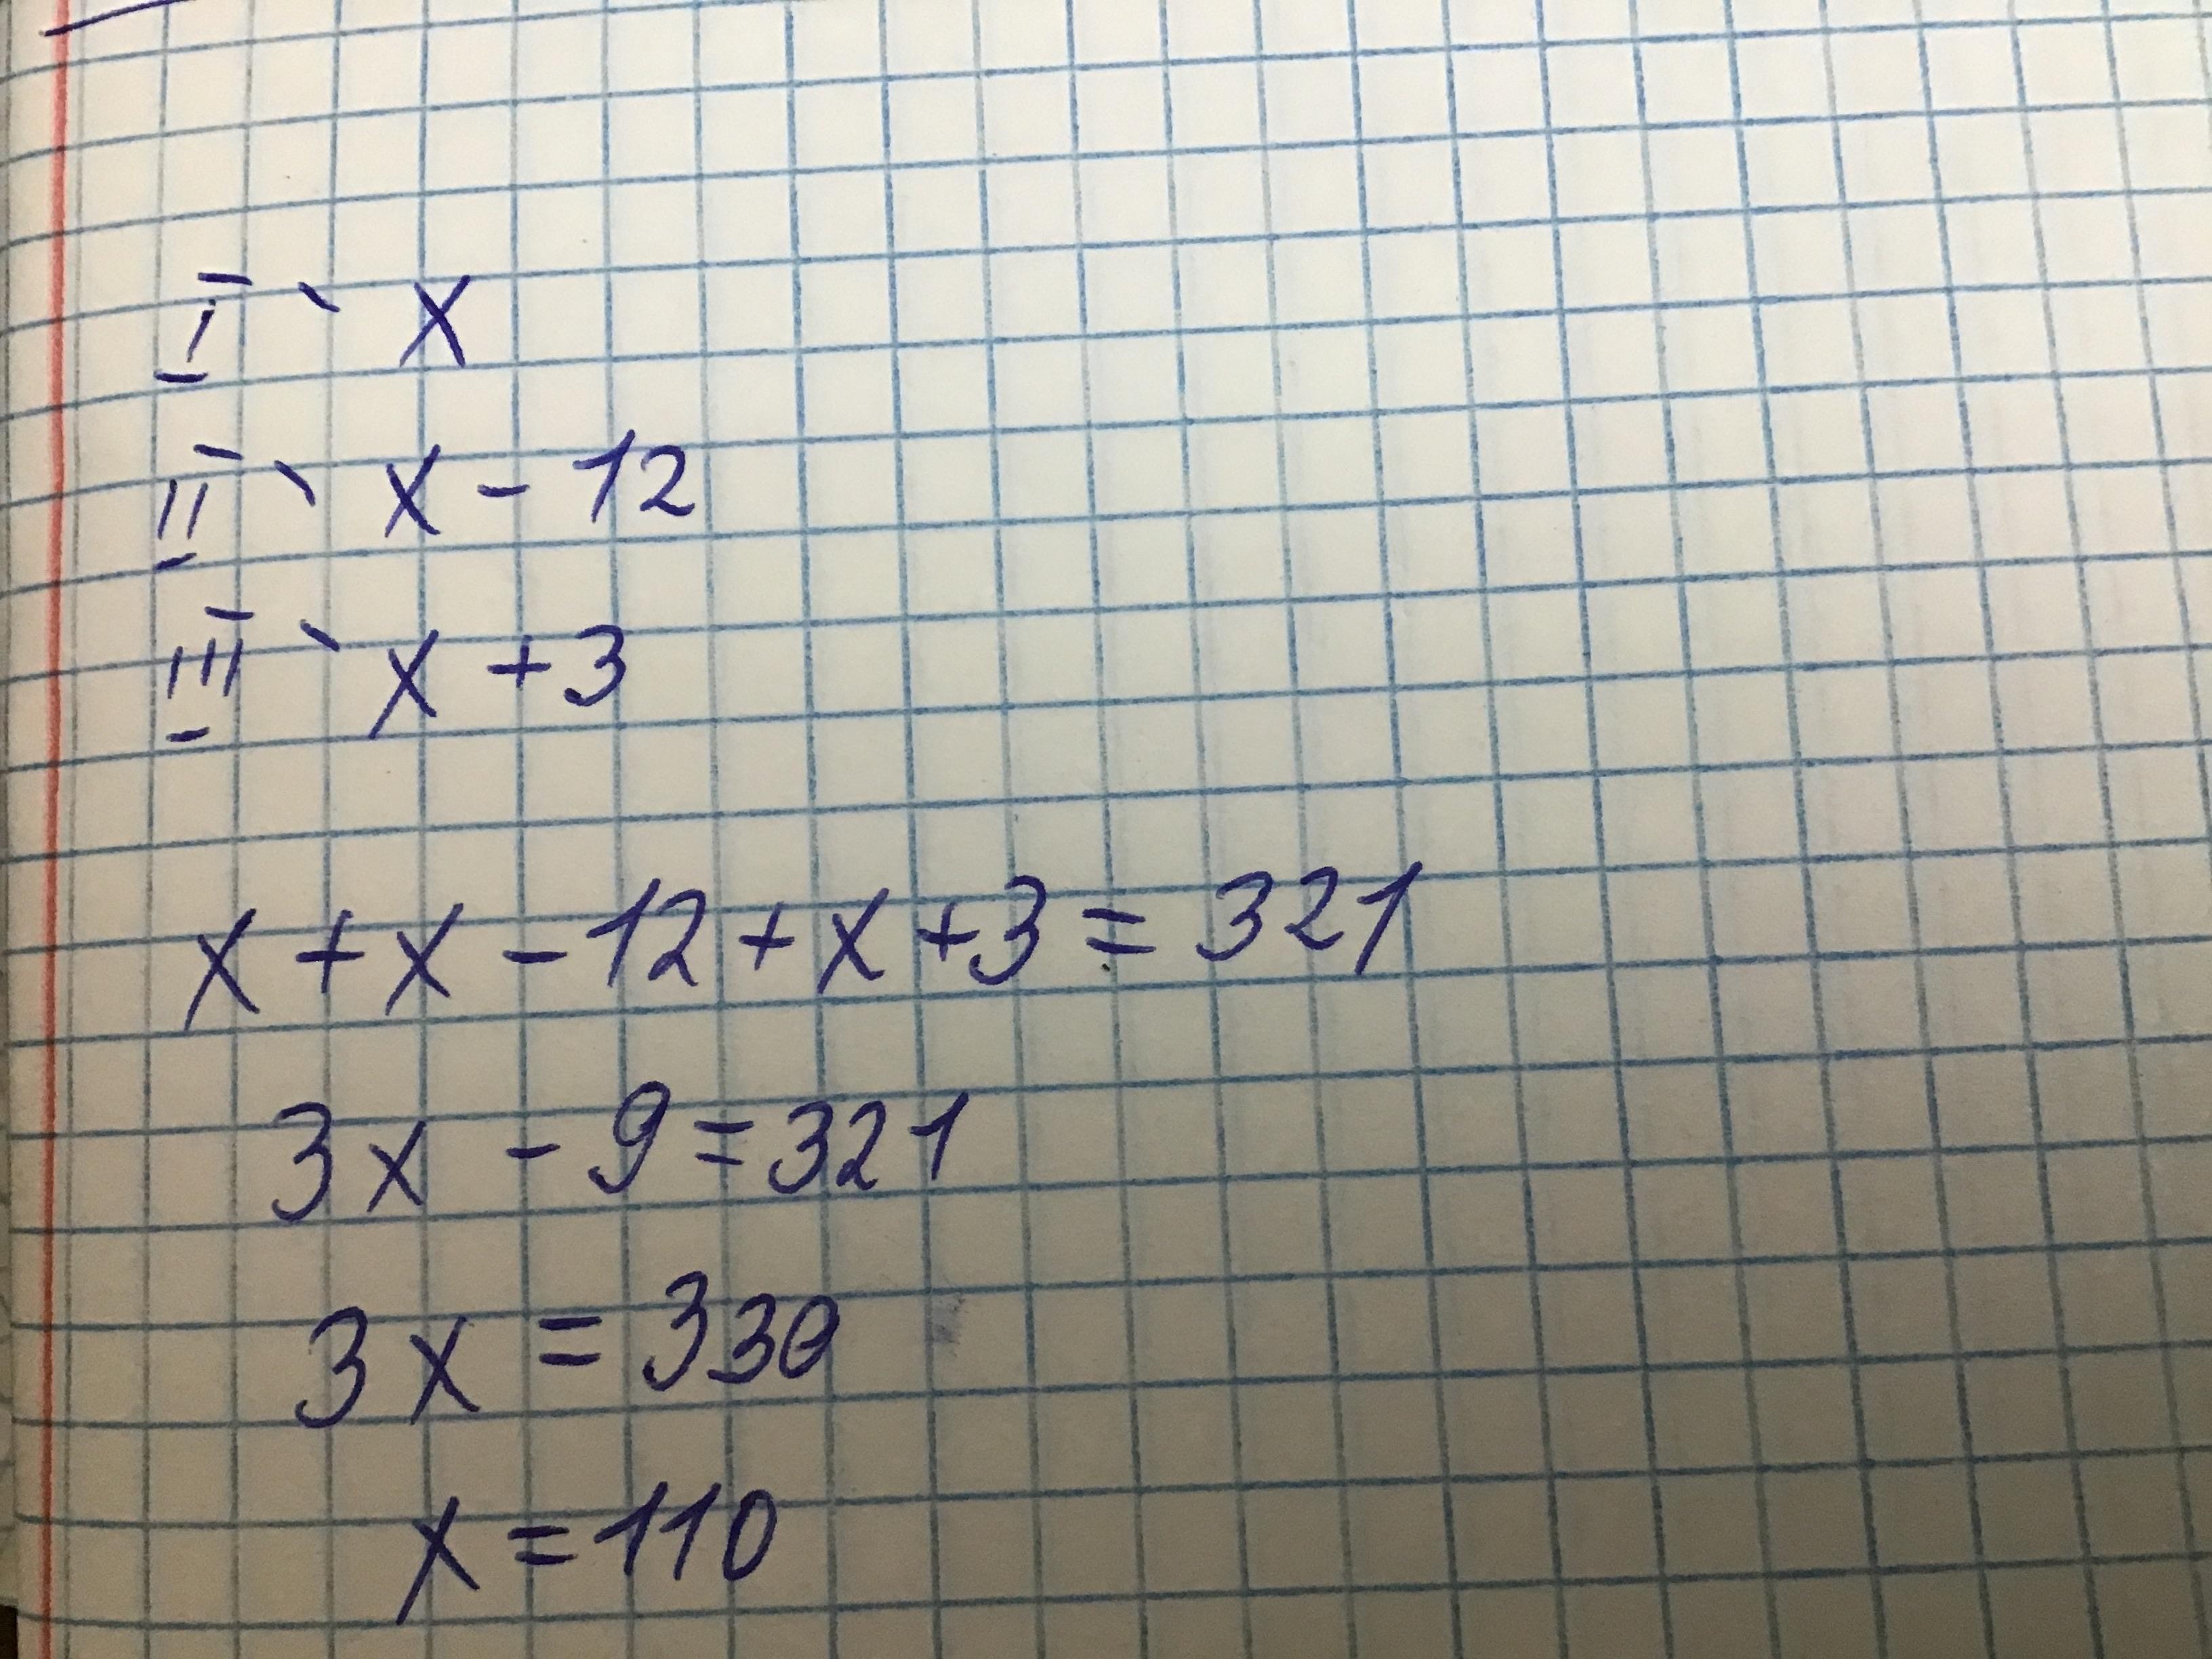 I` x
II` x - 12
III` x + 3
x + x - 12 + x + 3 = 321
3x - 9 = 321
3x = 330
x = 110